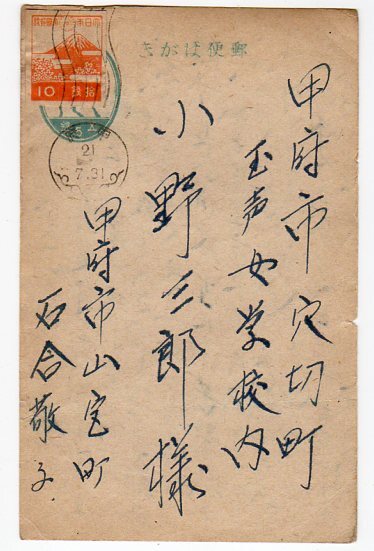 郵便はがき
甲府市穴切町
玉声女学校内
小野三郎様
甲府市山宮町
石合敬子
10
拾銭
21
7.31